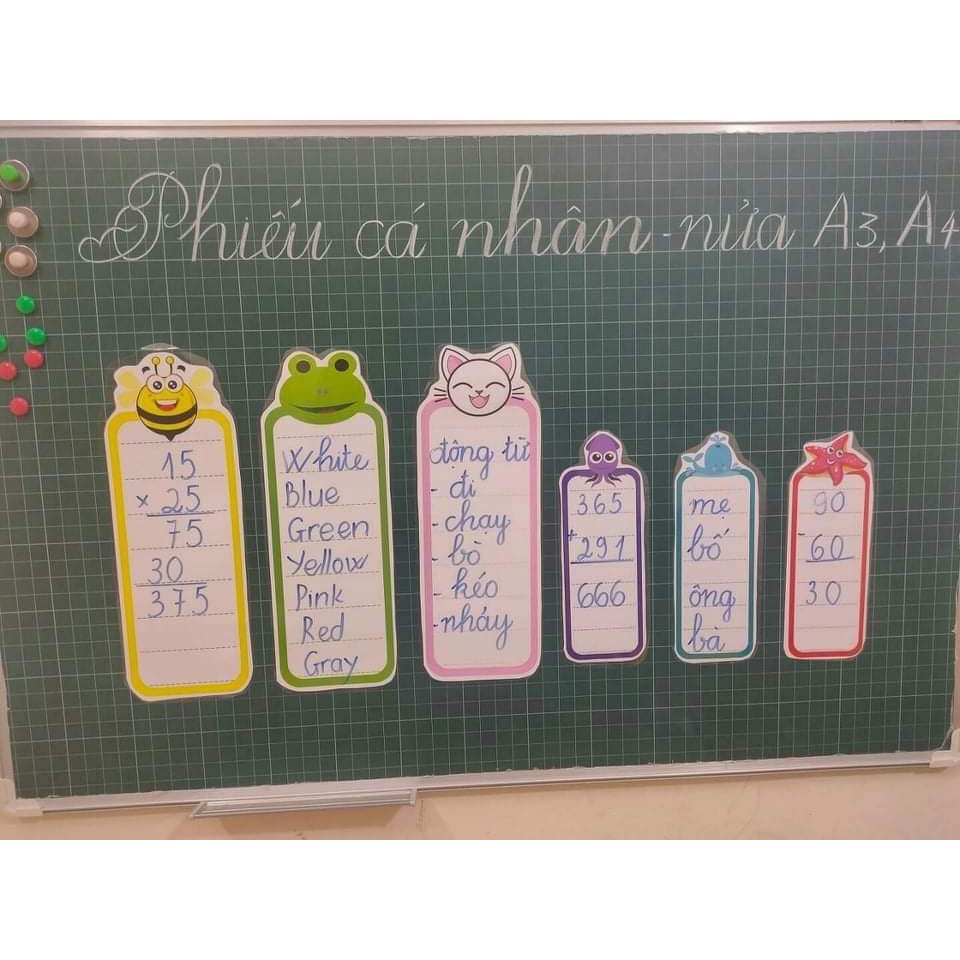 Phiếu cá nhân - nửa A3, A4
15
× 25
75
30
375
White
Blue
Green
Yellow
Pink
Red
Gray
động từ
- đi
- chạy
- bò
- kéo
- nháy
365
+ 291
666
mẹ
bố
ông
bà
90
- 60
30